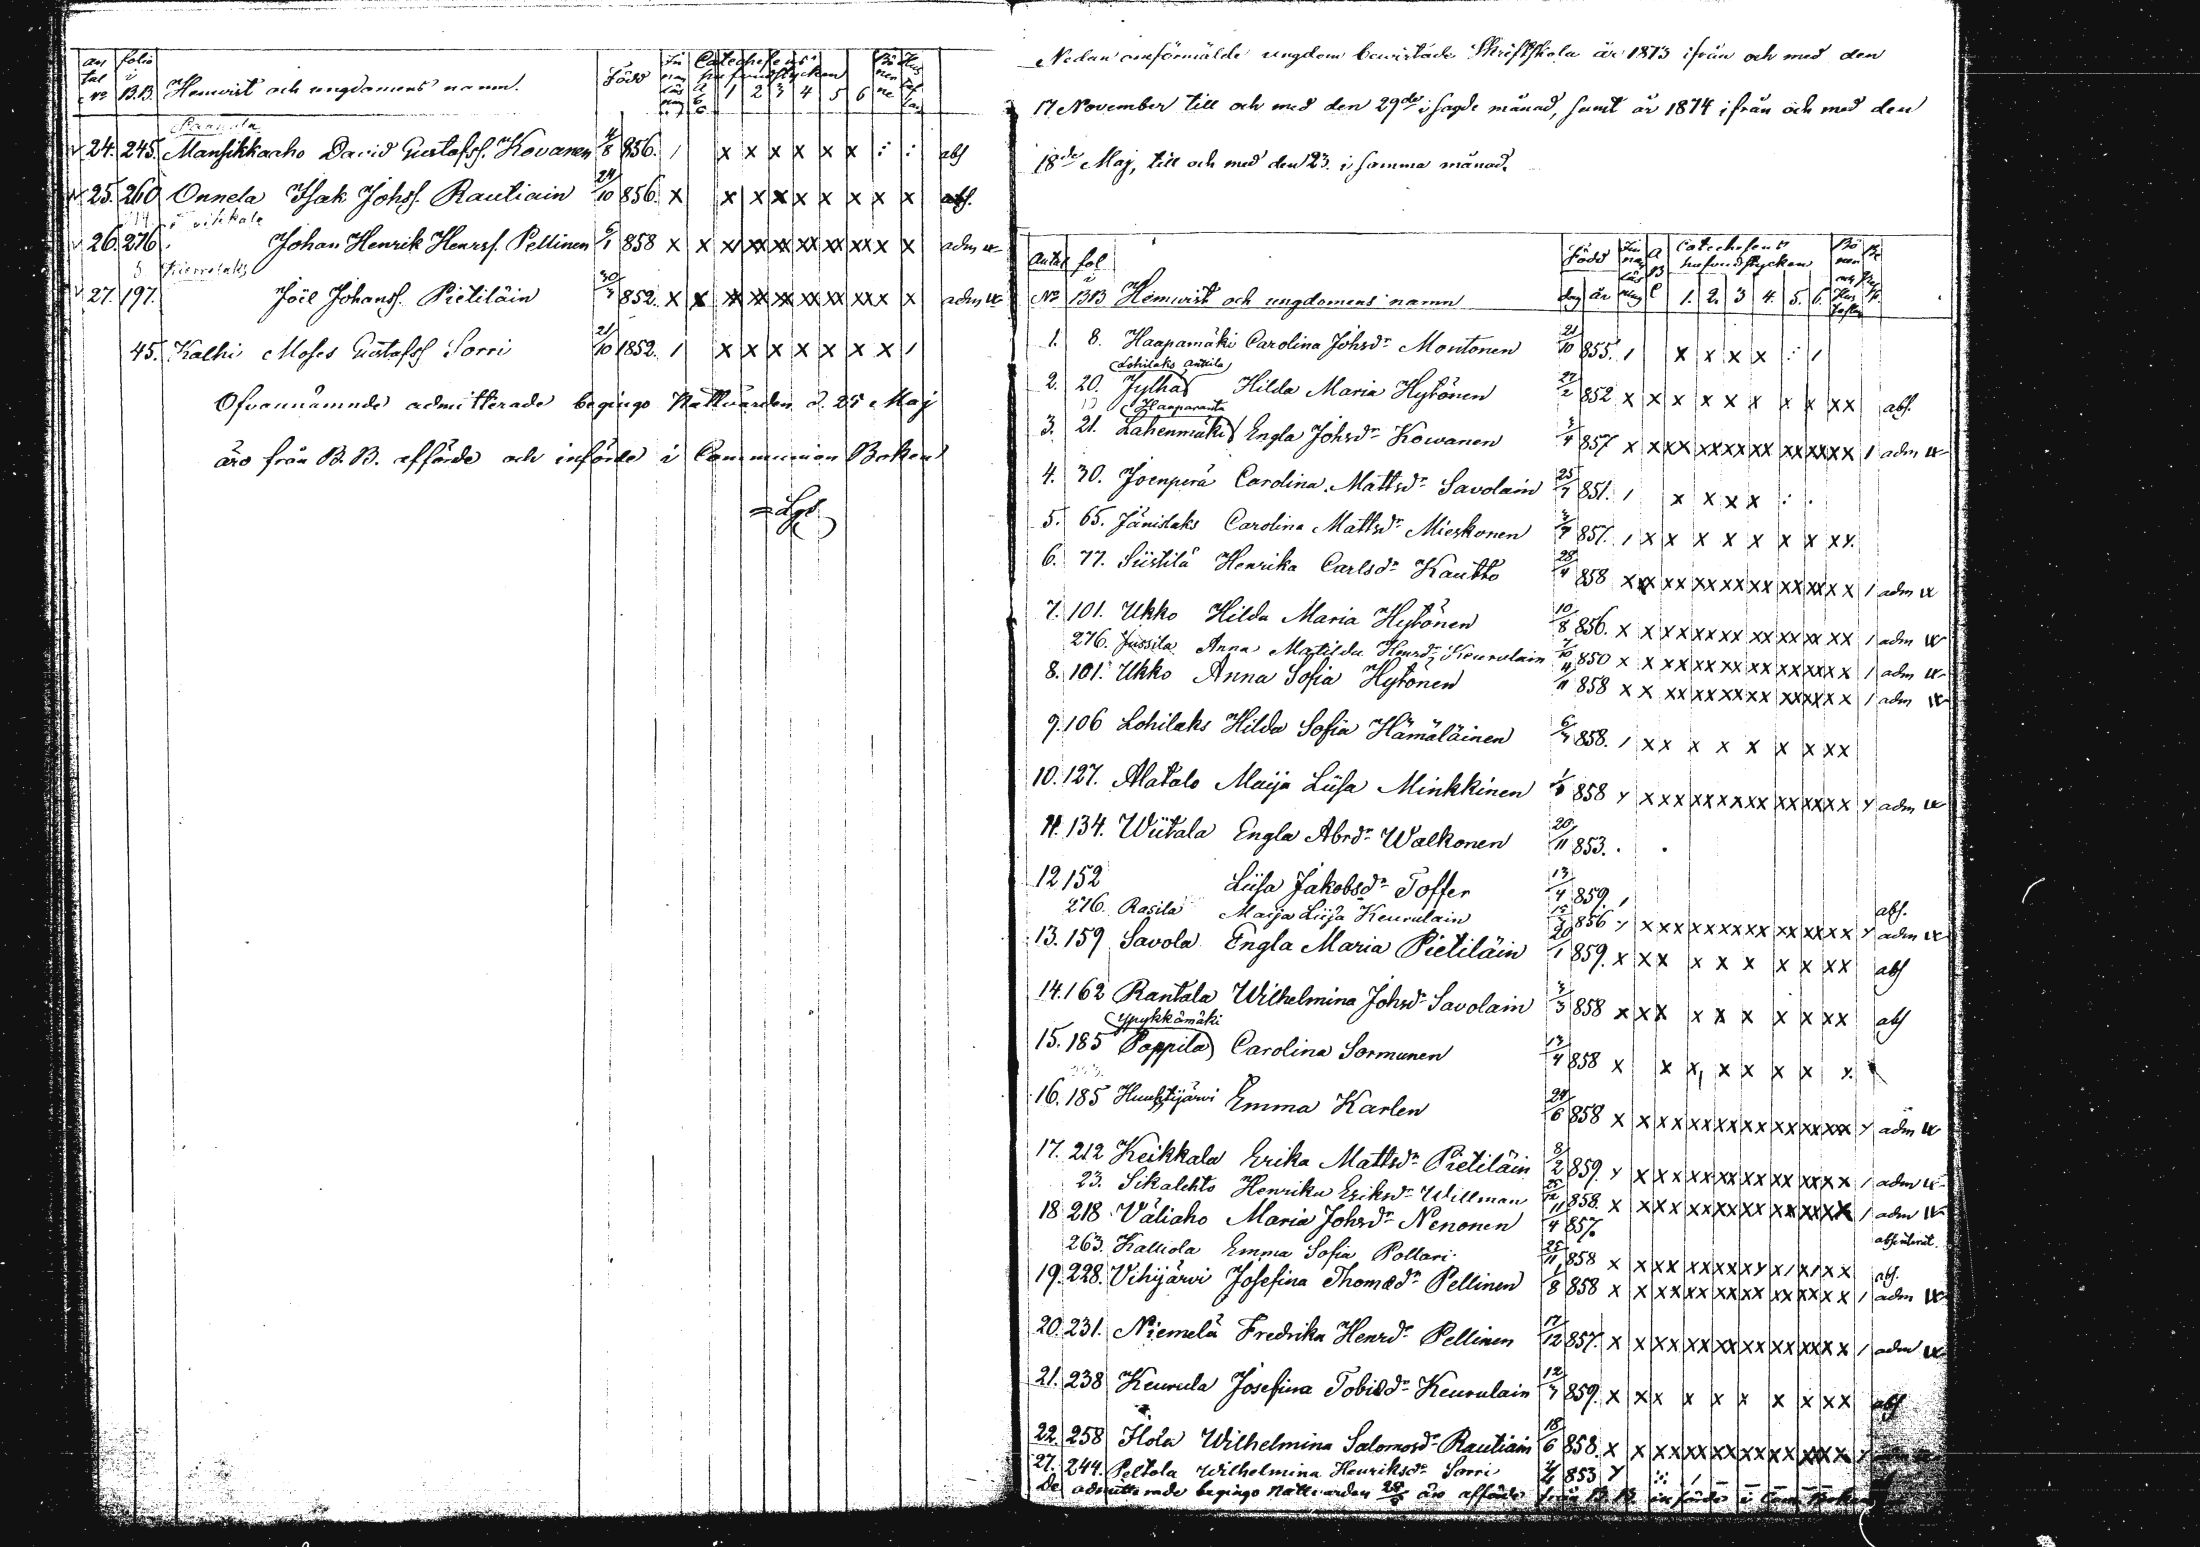 an tal No folio i B.B. Hemvist och ungdomens namn. Född Catecheseus hufvudstycken 1 2 3 4 5 6
24. 245. Mansikkaaho David Gustafss. Kovanen 4/8 856. / x x x x x x : : abs
25. 260 Onnela Isak Johss. Rautiain 24/10 856. x x x x x x x x x abs.
26. 276 Johan Henrik Henrss. Pellinen 6/1 858 x x x xx xx xx xx xx x x adm
27. 197. Joel Johanss. Pietiläin 30/7 852. x x xx xx xx xx xx xxx x adm
45. Kalhi Moses Gustafss Sorri 21/10 1852. / x x x x x x x /
Ofvannämnde admitterade begingo Nattvarden d. 25 Maj
äro från B.B. afförde och införde i Communion Boken
Nedan anförmälde ungdom bewistade Skriftskola år 1873 ifrån och med den
17 November till och med den 29de i sagde månad, samt år 1874 ifrån och med den
18de Maj, till och med den 23. i samma månad.
Antal No fol i BB Hemvist och ungdomens namn Född dag år Catecheseus hufvudstycken 1. 2. 3 4. 5. 6.
1. 8. Haapamäki Carolina Johsdr Montonen 21/10 855. / x x x x : /
Lohilaks Anttila
2. 20. Jylhä Hilda Maria Hytönen 27/2 852 x x x x x x x x xx abs.
Haaparanta
3. 21. Lahenmäki Engla Johsdr Kowanen 3/4 857 x xxx xxxxxx xxxxxx / adm
4. 30. Joenperä Carolina Mattsdr Savolain 25/7 851. / x x x x : .
5. 65. Jänislaks Carolina Mattsdr Mieskonen 857. / x x x x x x x xx.
6. 77. Siistilä Henrika Carlsdr Kautto 28/4 858 xx xx xxxxxx xxxxx x / adm
7. 101. Ukko Hilda Maria Hytönen 10/8 856. x x xxxxxx xx xx xx xx / adm
276. Jussila Anna Matilda Henrdr Keurulain 7/10 850 x x xxxxxx xx xxxxxx x / adm
8. 101. Ukko Anna Sofia Hytönen 4/11 858 x x xx xxxxxx xxxxx x / adm
9. 106 Lohilaks Hilda Sofia Hämäläinen 6/7 858. / x x x x x x x xx
10. 127. Alatalo Maija Liisa Minkkinen 858 x xxx xxxxxxx xxxxxx x adm
11. 134. Wiitala Engla Abrdr Walkonen 20/11 853. . .
12 152 Liisa Jakobsdr Toffer 13/4 859. / abs.
276. Rasila Maija Liisa Keurulain 856 x x xxxxxxxx xx xxxx x adm
13. 159 Savola Engla Maria Pietiläin 20/1 859. x x x x x x x x xx abs
14. 162 Rantala Wilhelmina Johsdr Savolain 858 x x x x x x x x xx abs
Ypykkämäki
15. 185 Pappila Carolina Sormunen 13/4 858 x x x, x x x x x.
16. 185 Huuhtijärvi Emma Karlen 24/6 858 x x xxxxxxxx xxxxxxx x adm
17. 212 Keikkala Erika Mattsdr Pietiläin 8/2 859. x x xxxxxxxx xx xxxx / adm
23. Sikalehto Henrika Eriksdr Willman 25/12 858. x x xxxxxxxx xxxxxxx / adm
18 218 Väliaho Maria Johsdr Nenonen 11/4 857.
263. Kalliola Emma Sofia Pollari 25/11 858 x x xxx xxxxxx x / x / x x abs.
19. 228. Vihijärvi Josefina Thomædr Pellinen 858 x x xxxx xxxx xx xx x x / adm
20. 231. Niemelä Fredrika Henrdr Pellinen 17/12 857. x x xxxx xx xx xx xxxx / adm
21. 238 Keurula Josefina Tobiædr Keurulain 12/7 859. x x x x x x x x xx abs
22. 258 Ilola Wilhelmina Salomosdr Rautiain 18/6 858. x x xxxxxxxxxx xxxx x
27. 244. Peltola Wilhelmina Henriksdr Sorri 853
De admitterade begingo Nattvarden äro afförde från B.B. införde i Com: Boken